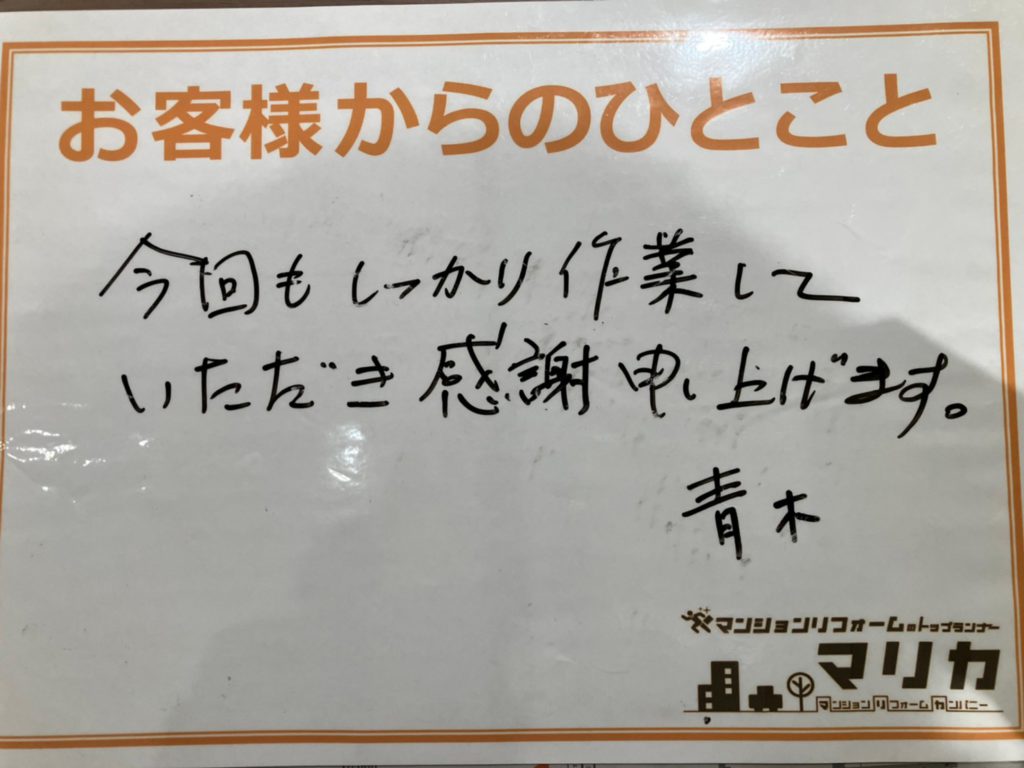 お客様からのひとこと
今回もしっかり作業して
いただき感謝申し上げます。
青木
マンションリフォームのトップランナー
マリカ
マンションリフォームカンパニー